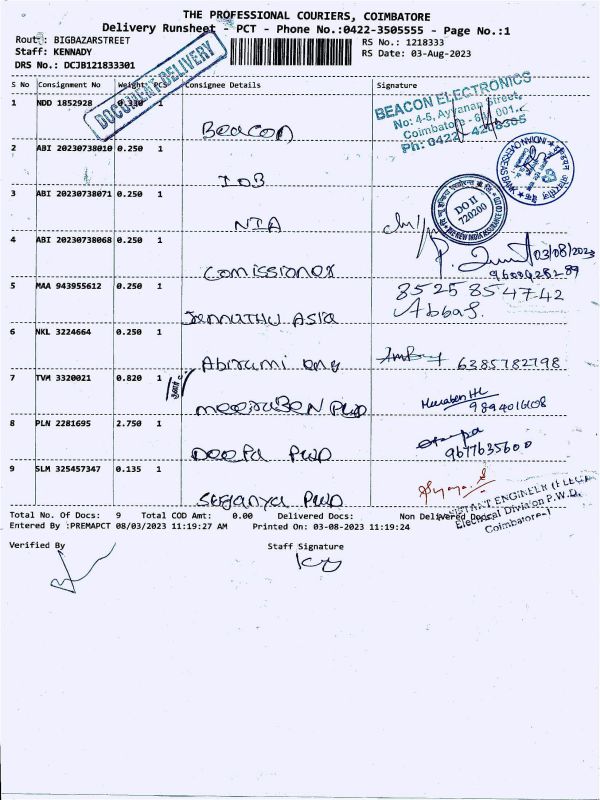 THE PROFESSIONAL COURIERS, COIMBATORE
Delivery Runsheet - PCT - Phone No.:0422-3505555 - Page No.:1
Route : BIGBAZARSTREET
Staff: KENNADY
DRS No.: DCJB121833301
RS No.: 1218333
RS Date: 03-Aug-2023
DOCUMENT DELIVERY
S No Consignment No Weight PCS Consignee Details Signature
1 NDD 1852928 0.330 1 Beacon
BEACON ELECTRONICS
No: 4-5, Ayyanar Street,
Coimbatore - 641 001.
Ph: 0422 - 4208305
2 ABI 20230738010 0.250 1 IOB
INDIAN OVERSEAS BANK
3 ABI 20230738071 0.250 1 NIA
DO II
720200
THE NEW INDIA ASSURANCE CO LTD
4 ABI 20230738068 0.250 1 Comissioner
03/08/2023
5 MAA 943955612 0.250 1 Jennathu Asia
85258 54742
Abbas.
6 NKL 3224664 0.250 1 Abirami eng
6385782798
7 TVM 3320021 0.820 1 MeeraBEN PWD
9894016108
8 PLN 2281695 2.750 1 Deepa PWD
9677635600
9 SLM 325457347 0.135 1 Suganya PWD
ASSISTANT ENGINEER (ELEC)
Electrical Division P.W.D.
Coimbatore-1
Total No. Of Docs: 9 Total COD Amt: 0.00 Delivered Docs: Non Delivered Docs:
Entered By :PREMAPCT 08/03/2023 11:19:27 AM Printed On: 03-08-2023 11:19:24
Verified By Staff Signature